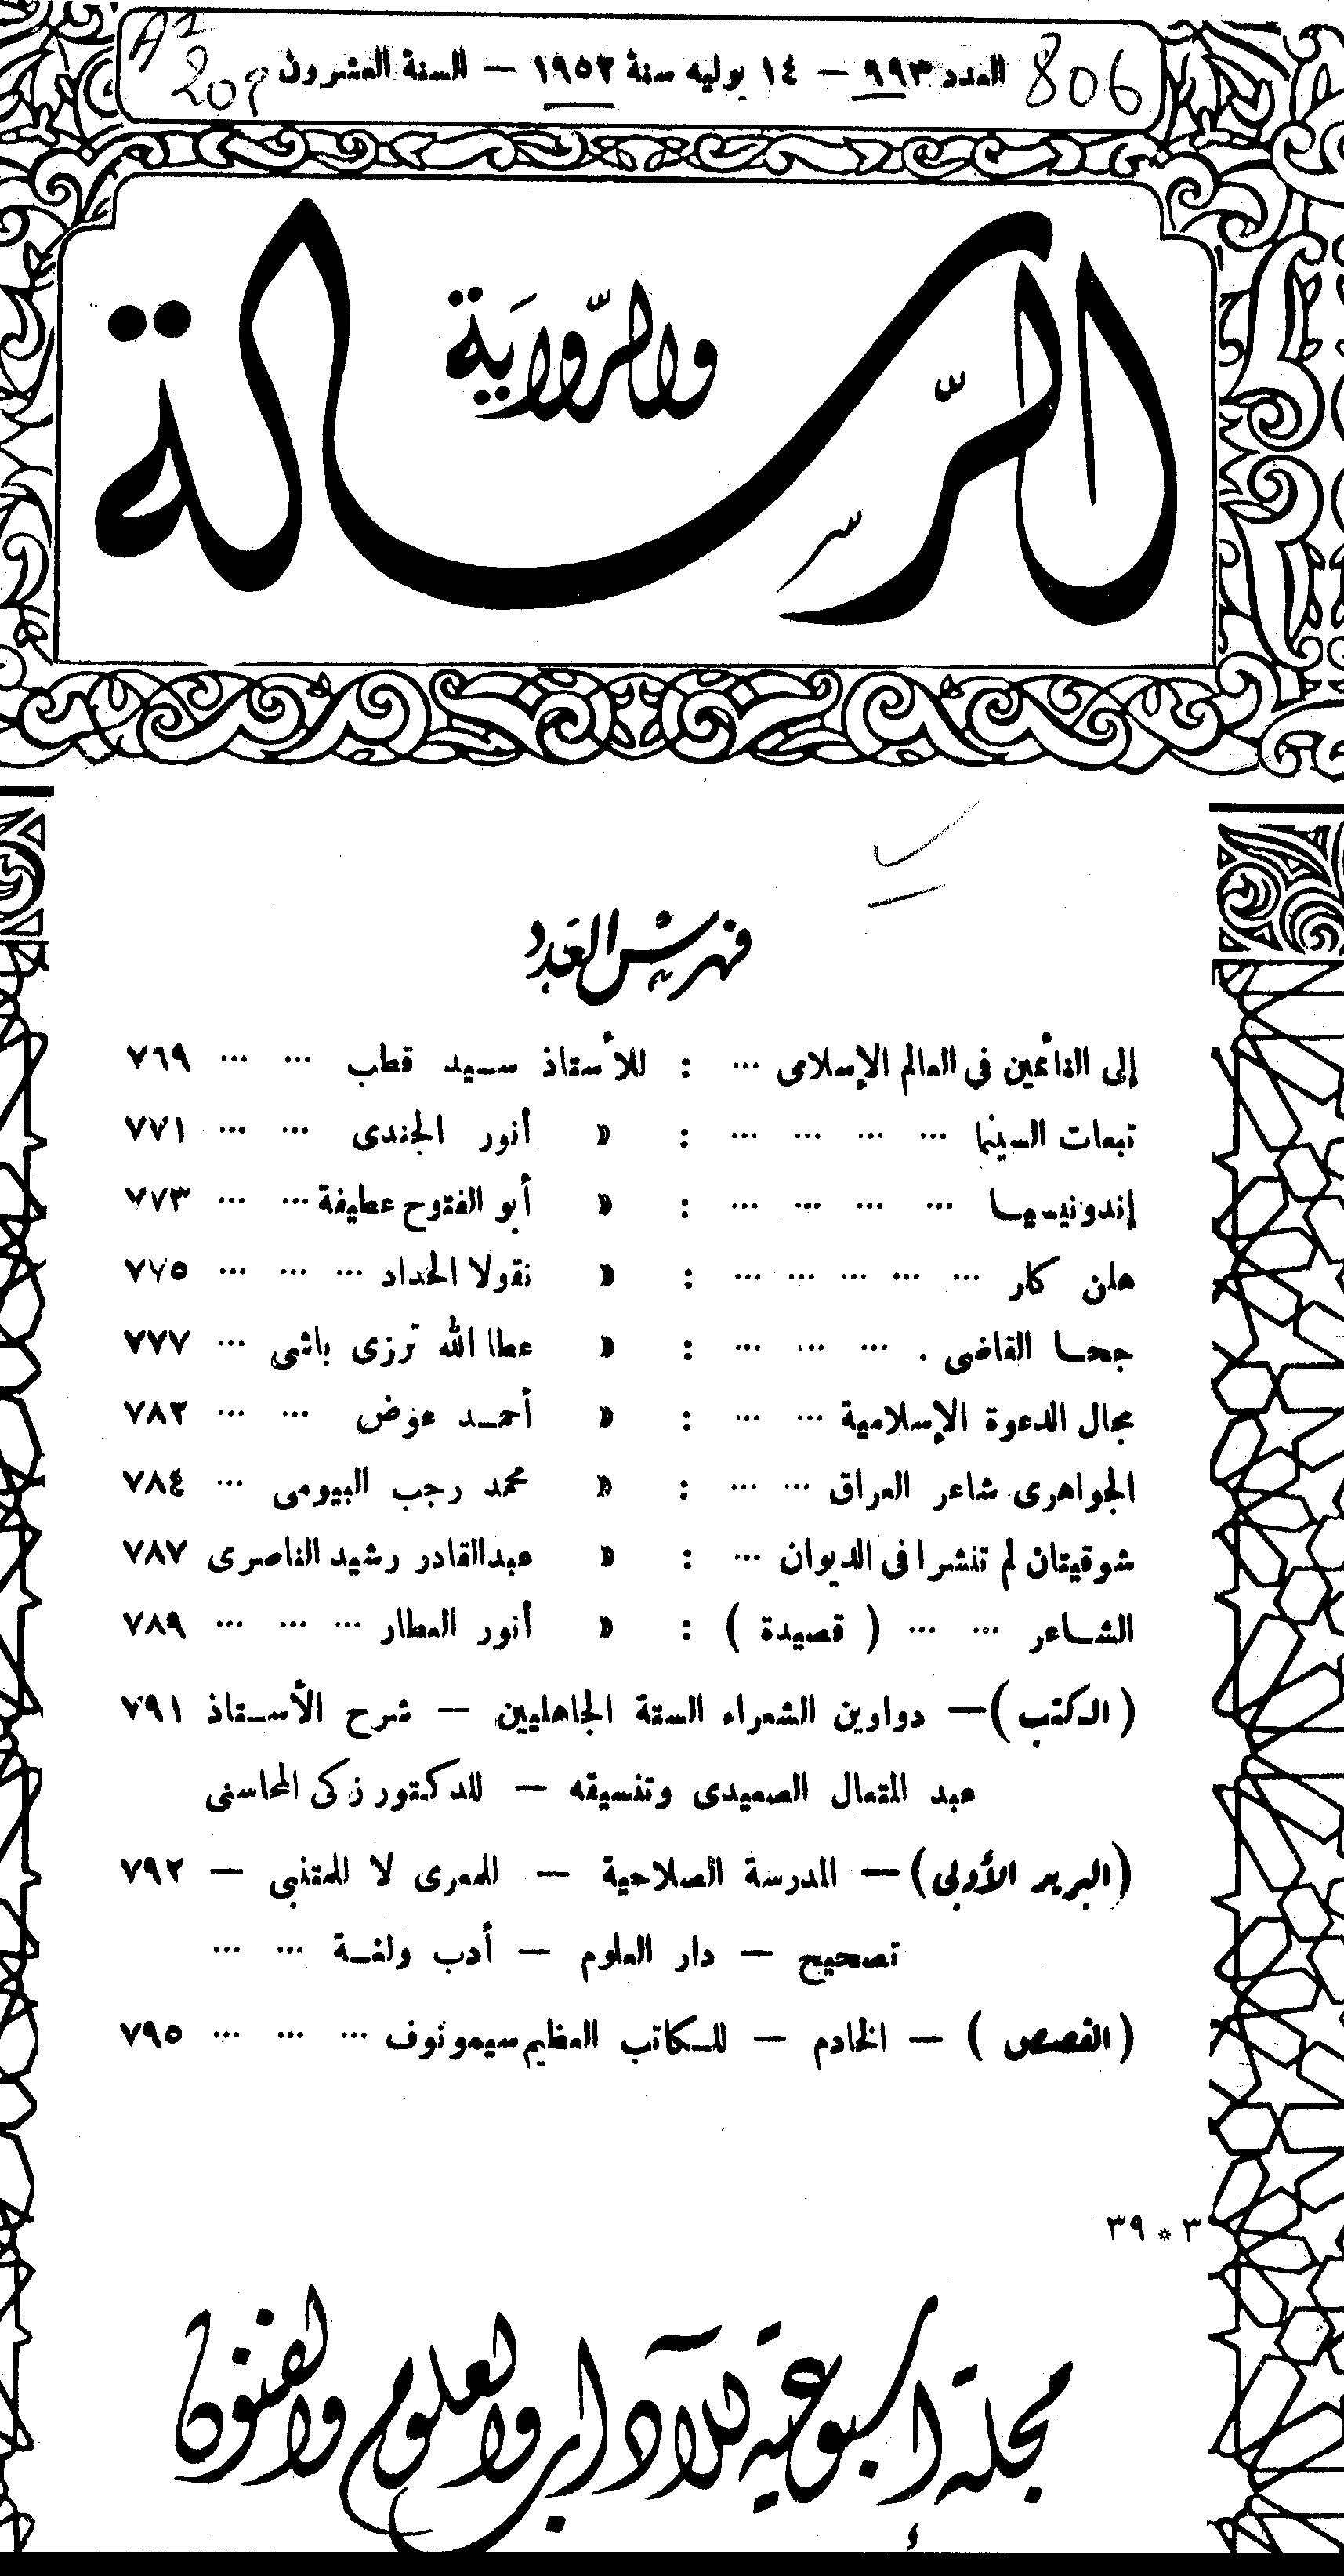 العدد ٩٩٣ — ١٤ يوليه سنة ١٩٥٢ — السنة العشرون
806
الرسالة
والرواية
فهرس العدد
إلى النائمين في العالم الإسلامى ... : للأستاذ سيد قطب ... ... ٧٦٩
تبعات السينما ... ... ... ... : » أنور الجندى ... ... ٧٧١
إندونيسيا ... ... ... ... : » أبو الفتوح عطيفة ... ... ٧٧٣
هلن كلر ... ... ... ... ... : » نقولا الحداد ... ... ... ٧٧٥
جحا القاضى . ... ... ... : » عطا الله ترزى باشى ... ٧٧٧
مجال الدعوة الإسلامية ... ... : » أحمد عوض ... ... ٧٨٢
الجواهرى شاعر العراق ... ... : » محمد رجب البيومى ... ٧٨٤
شوقيتان لم تنشرا فى الديوان ... : » عبدالقادر رشيد الناصرى ٧٨٧
الشاعر ... ... ( قصيدة ) : » أنور العطار ... ... ... ٧٨٩
( الكتب ) — دواوين الشعراء الستة الجاهليين — شرح الأستاذ ٧٩١
عبد المتعال الصعيدى وتنسيقه — للدكتور زكى المحاسنى
(البريد الأدبى) — المدرسة الصلاحية — للمعرى لا للمتنبى — ٧٩٢
تصحيح — دار العلوم — أدب ولغة ... ...
( القصص ) — الخادم — للكاتب العظيم سيمونوف ... ... ... ٧٩٥
٣ * ٣٩
مجلة أسبوعية للآداب والعلوم والفنون